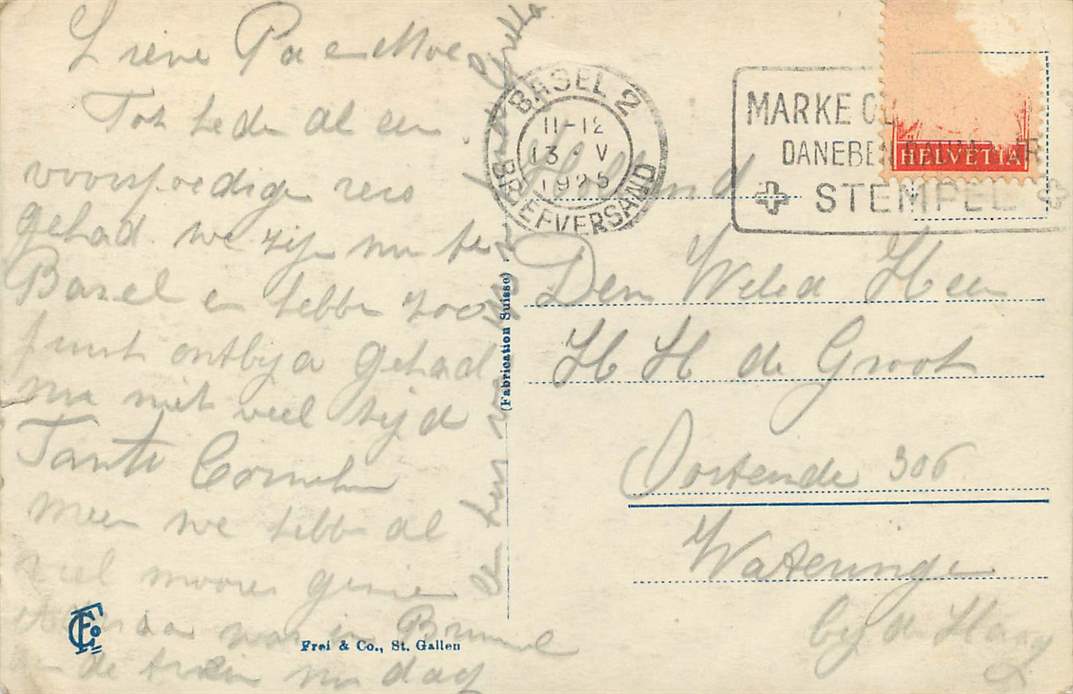 Lieve Pa en Moe
Tot heden al een
voorspoedige reis
gehad we zijn nu te
Basel en hebben zoo
juist ontbijd gehad
nu niet veel tijd
Tante
meer we hebben al
veel moois gezien
was in Brussel
in de trein nu dag
BASEL 2
11-12
13 V
1925
BRIEFVERSAND
MARKE
DANEBEN
STEMPEL
HELVETIA
Holland
Den Weled Heer
H H de Groot
Oosteinde 306
Wateringe
bij den Haag
(Fabrication Suisse)
Frei & Co., St. Gallen